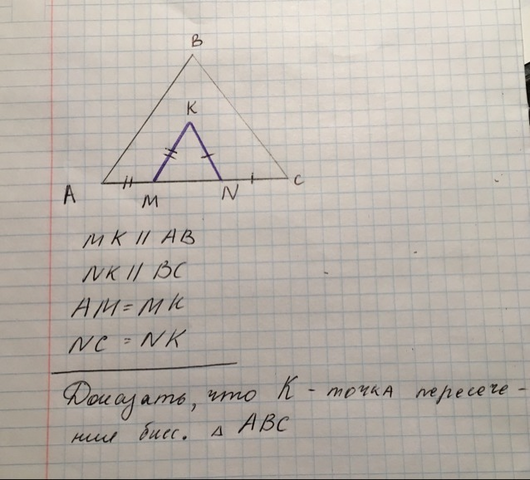 B
K
A
M
N
C
MK || AB
NK || BC
AM = MK
NC = NK
Доказать, что K - точка пересече-
ния бисс. △ ABC